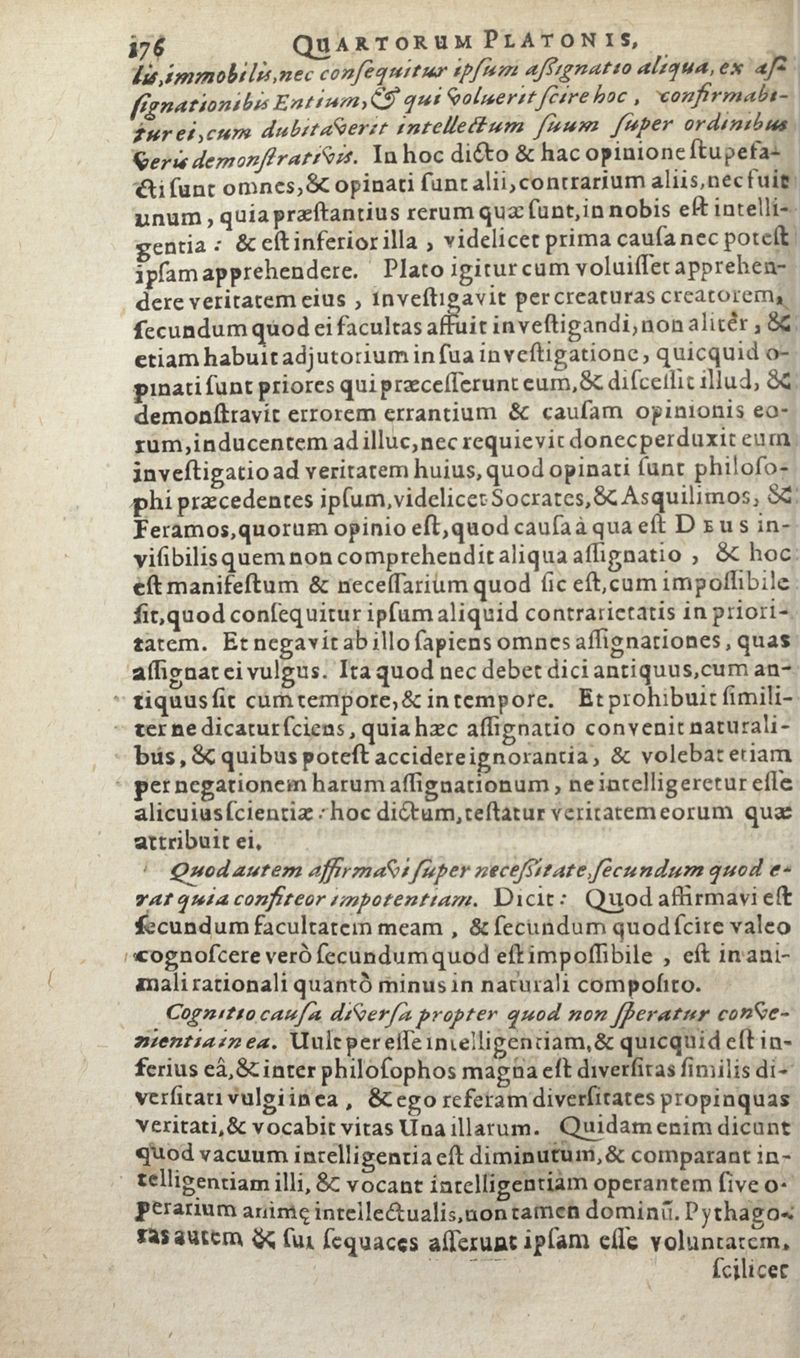 176 QUARTORUM PLATONIS,
lis,immobilis,nec consequitur ipsum assignatio aliqua, ex as-
signationibis Entium, & qui voluerit scire hoc, confirmabi-
tur ei,cum dubitaverit intellectum suum super ordinibus
veris demonstrativis. In hoc dicto & hac opinione stupefa-
cti sunt omnes,& opinati sunt alii,contrarium aliis,nec fuit
unum, quia præstantius rerum quæ sunt,in nobis est intelli-
gentia : & est inferior illa , videlicet prima causa nec potest
ipsam apprehendere. Plato igitur cum voluisset apprehen-
dere veritatem eius , investigavit per creaturas creatorem,
secundum quod ei facultas affuit investigandi,non alitèr , &
etiam habuit adjutorium in sua investigatione, quicquid o-
pinati sunt priores qui præcesserunt eum,& discessit illud, &
demonstravit errorem errantium & causam opinionis eo-
rum,inducentem ad illuc,nec requievit donec perduxit eum
investigatio ad veritatem huius, quod opinati sunt philoso-
phi præcedentes ipsum,videlicet Socrates,& Asquilimos, &
Feramos,quorum opinio est,quod causa à qua est DEUS in-
visibilis quem non comprehendit aliqua assignatio , & hoc
est manifestum & necessarium quod sic est,cum impossibile
sit,quod consequitur ipsum aliquid contrarietatis in priori-
tatem. Et negavit ab illo sapiens omnes assignationes, quas
assignat ei vulgus. Ita quod nec debet dici antiquus,cum an-
tiquus sit cum tempore,& in tempore. Et prohibuit simili-
ter ne dicatur sciens, quia hæc assignatio convenit naturali-
bus, & quibus potest accidere ignorantia, & volebat etiam
per negationem harum assignationum, ne intelligeretur esse
alicuius scientiæ : hoc dictum, testatur veritatem eorum quæ
attribuit ei.
Quod autem affirmavi super necessitate,secundum quod e-
rat quia confiteor impotentiam. Dicit : Quod affirmavi est
secundum facultatem meam , & secundum quod scire valeo
cognoscere verò secundum quod est impossibile , est in ani-
mali rationali quantò minus in naturali composito.
Cognitio causa diversa propter quod non speratur conve-
nientia in ea. Uult per esse intelligentiam,& quicquid est in-
ferius eâ,& inter philosophos magna est diversitas similis di-
versitati vulgi in ea , & ego referam diversitates propinquas
veritati,& vocabit vitas Una illarum. Quidam enim dicunt
quod vacuum intelligentia est diminutum,& comparant in-
telligentiam illi, & vocant intelligentiam operantem sive o-
perarium animę intellectualis,non tamen dominū. Pythago-
ras autem & sui sequaces asserunt ipsam esse voluntatem,
scilicet